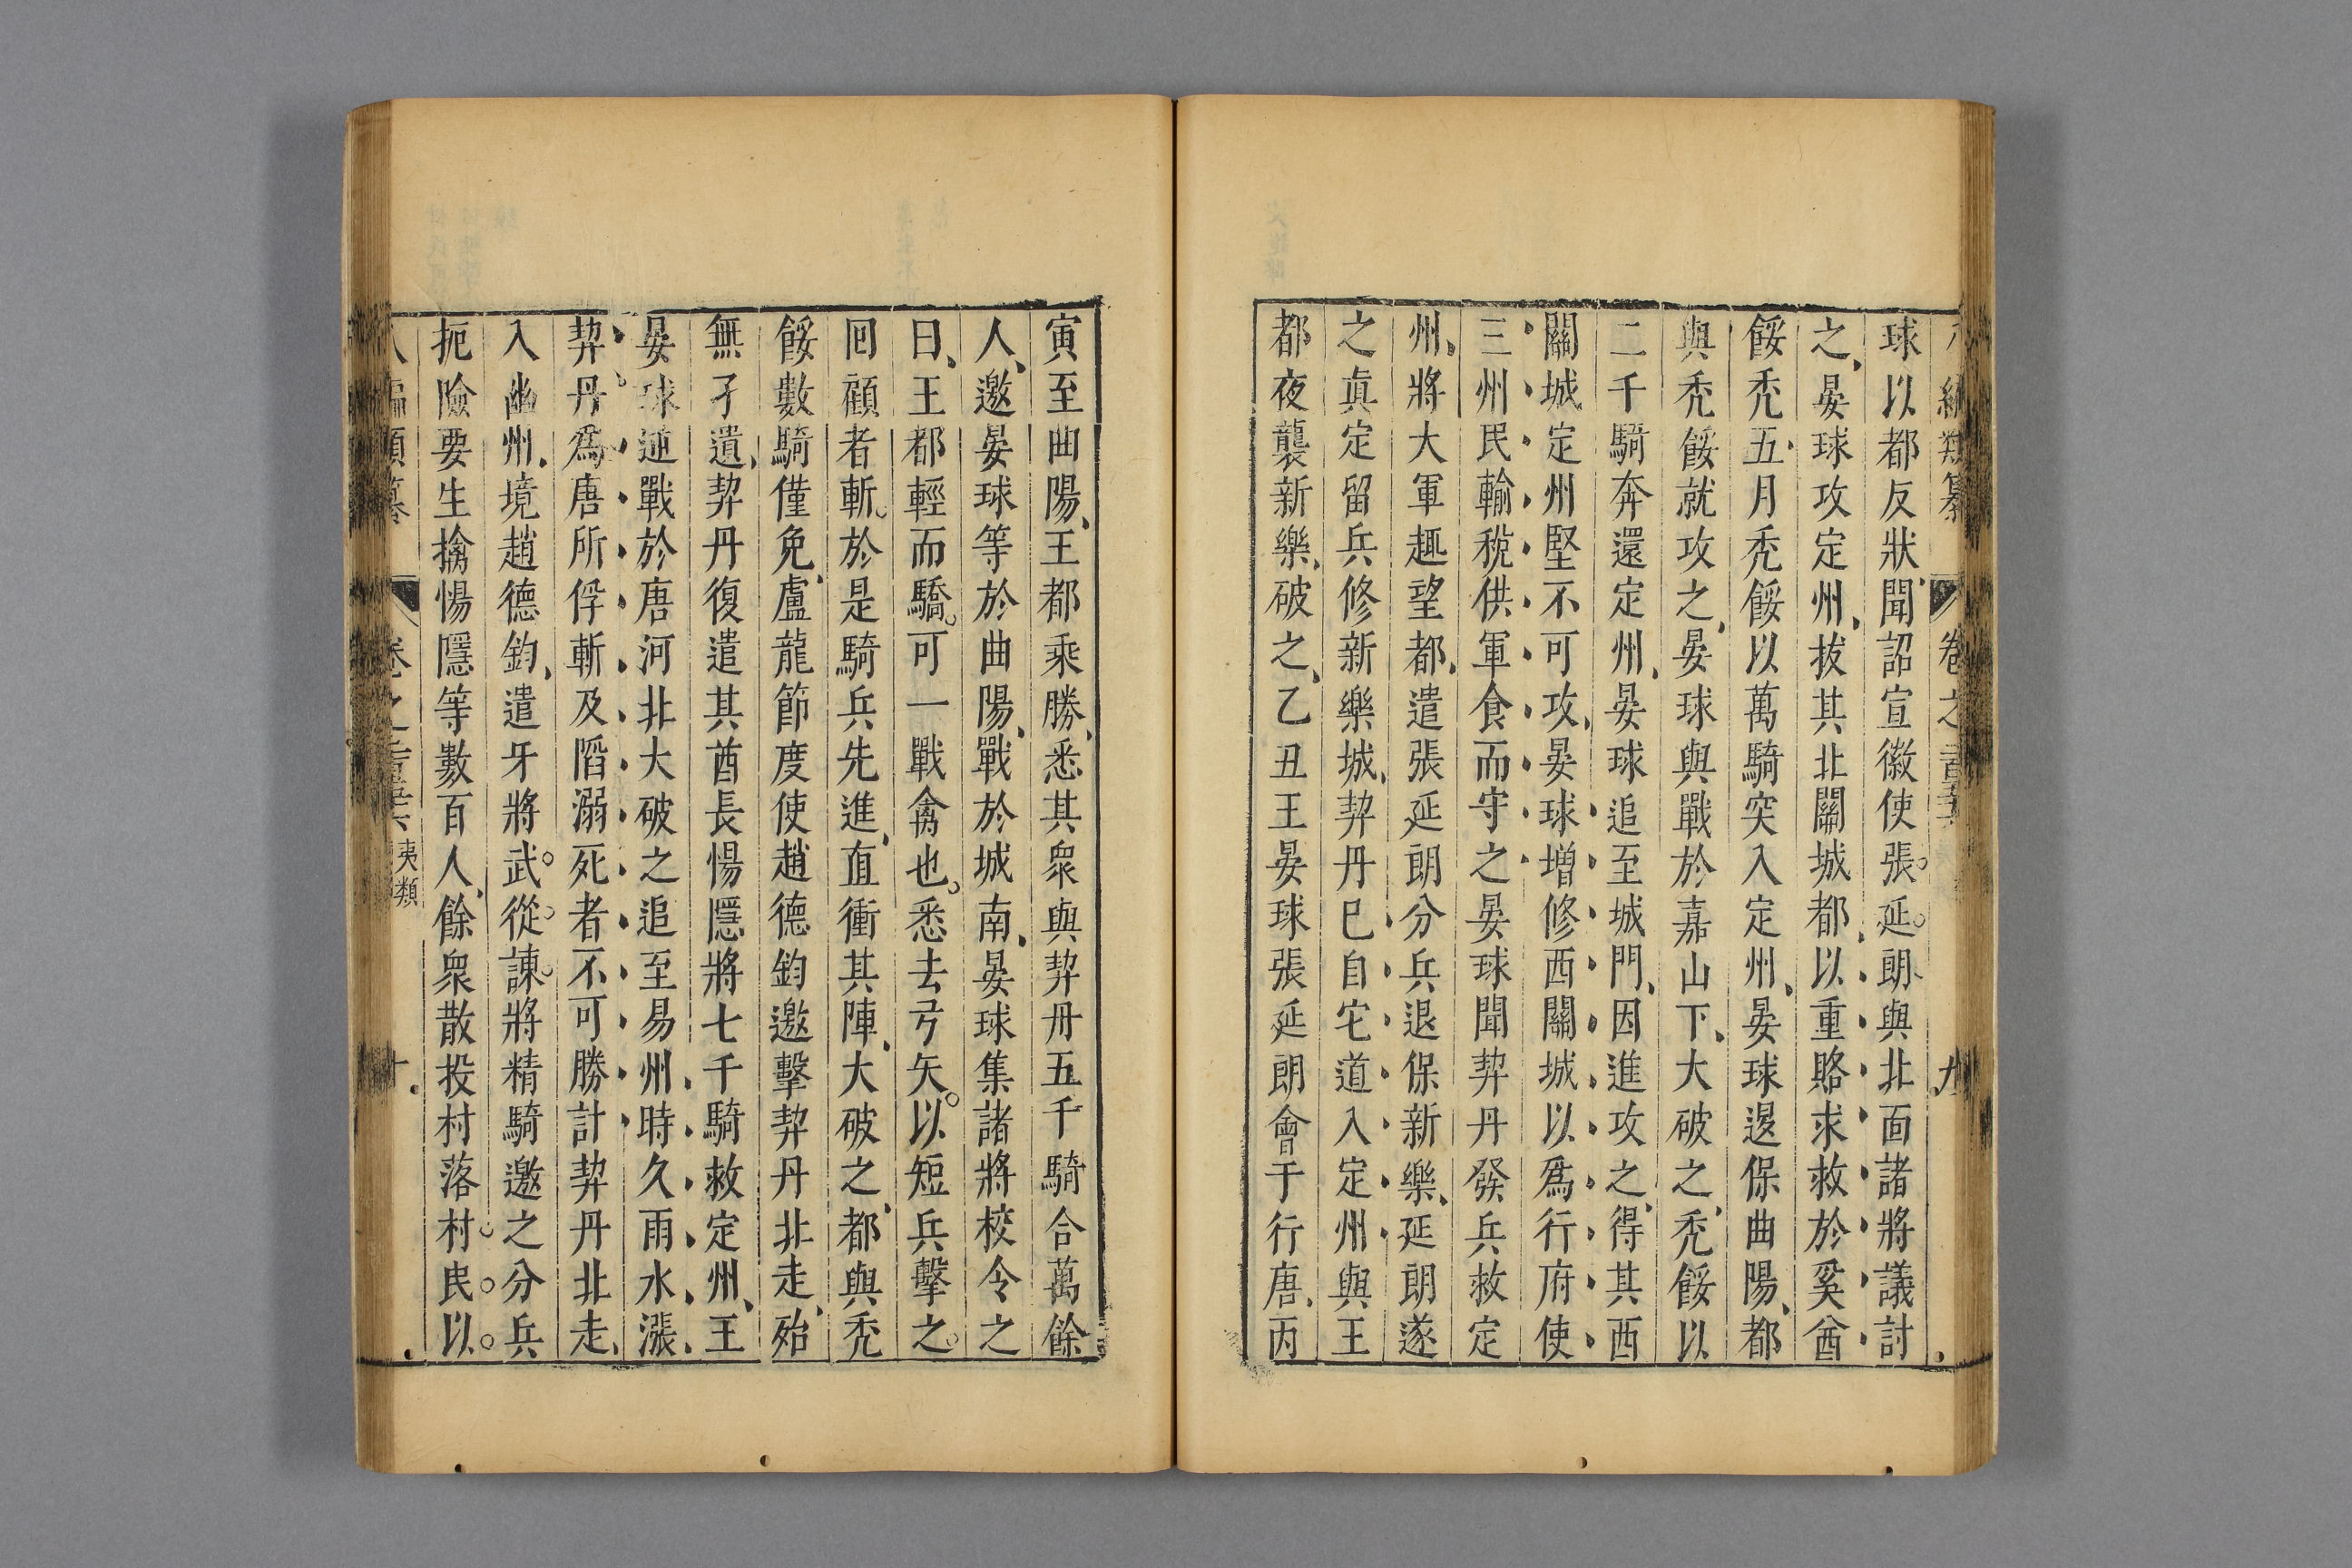 球以都反狀聞詔宣徽使張延朗與北面諸將議討
之晏球攻定州拔其北關城都以重賂求救於奚酋
餒禿五月禿餒以萬騎突入定州晏球退保曲陽都
與禿餒就攻之晏球與戰於嘉山下大破之禿餒以
二千騎奔還定州晏球追至城門因進攻之得其西
關城定州堅不可攻晏球增修西關城以爲行府使
三州民輸稅供軍食而守之晏球聞契丹發兵救定
州將大軍趣望都遣張延朗分兵退保新樂延朗遂
之眞定留兵修新樂城契丹已自宅道入定州與王
都夜襲新樂破之乙丑王晏球張延朗會于行唐丙
寅至曲陽王都乘勝悉其衆與契丹五千騎合萬餘
人邀晏球等於曲陽戰於城南晏球集諸將校令之
曰王都輕而驕可一戰禽也悉去弓矢以短兵擊之
回顧者斬於是騎兵先進直衝其陣大破之都與禿
餒數騎僅免盧龍節度使趙德鈞邀擊契丹北走殆
無孑遺契丹復遣其酋長惕隱將七千騎救定州王
晏球逆戰於唐河北大破之追至易州時久雨水漲
契丹爲唐所俘斬及陷溺死者不可勝計契丹北走
入幽州境趙德鈞遣牙將武從諫將精騎邀之分兵
扼險要生擒惕隱等數百人餘衆散投村落村民以
夷類